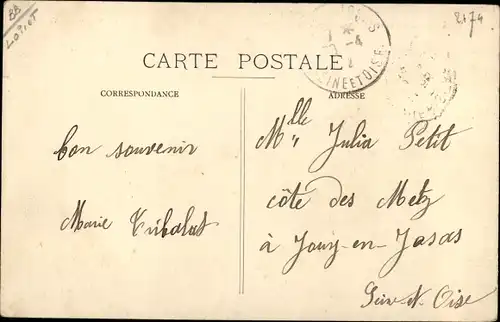 88
Loiret
2174
CARTE POSTALE
CORRESPONDANCE
ADRESSE
bon souvenir
Marie Tribalat
Mlle Julia Petit
côte des Metz
à Jouy-en-Josas
Sein-et-Oise
ET OISE